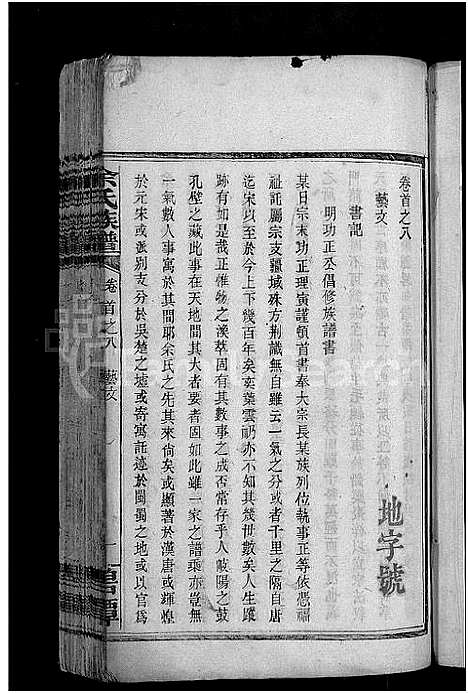 卷首之八
藝文
地字號
書記
明功正公倡修族譜書
某日宗末功正理寅謹頓首書奉大宗長某族列位執事正等依慿福
祉託屬宗支疆域殊方荆識無自雖云一氣之分或者千里之隔自唐
迄宋以至於今上下幾百年矣奕葉雲礽亦不知其幾世幾數矣人生蹤
跡有如是哉正惟物之渙萃固有其數事之成否常存乎人岐陽之鼓
孔壁之藏此事在天地間其大者要者固如此雖一家之譜乘亦豈無
一氣數人事寓於其間耶余氏之先其來尙矣或顯著於漢唐或輝煌
於元宋或派别支分於吳楚之墟或寄寓託迹於閩蜀之地或以官爲
余氏族譜
卷首之八
藝文
一